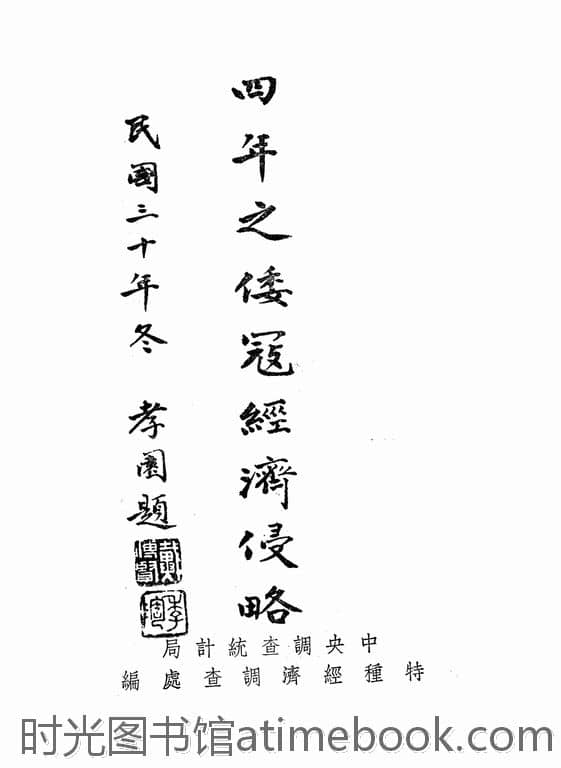 四年之倭寇經濟侵略
民國三十年冬 孝園題
戴傳賢
季陶
中央調查統計局
特種經濟調查處編
时光图书馆atimebook.com